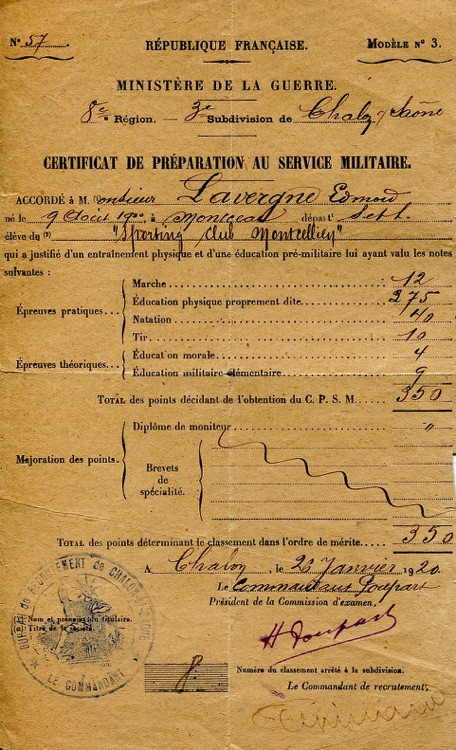 N° 57 RÉPUBLIQUE FRANÇAISE. MODÈLE N° 3.
MINISTÈRE DE LA GUERRE.
8e Région. — 3e Subdivision de Chalon s/ Saône
CERTIFICAT DE PRÉPARATION AU SERVICE MILITAIRE.
ACCORDÉ à M. onsieur Lavergne Edmond
né le 9 Août 1900 à Montceau départt S et L
élève du (2) "Sporting Club Montcellien"
qui a justifié d'un entraînement physique et d'une éducation pré-militaire lui ayant valu les notes
suivantes :
Épreuves pratiques...
Marche 12
Éducation physique proprement dite 275
Natation 40
Tir 10
Épreuves théoriques...
Éducation morale 4
Éducation militaire élémentaire 9
TOTAL des points décidant de l'obtention du C. P. S. M. 350
Majoration des points.
Diplôme de moniteur "
Brevets
de
spécialité.
TOTAL des points déterminant le classement dans l'ordre de mérite... 350
A Chalon, le 26 Janvier 1920
Le Commandant Poupart
Président de la Commission d'examen.
H Poupart
(1) Nom et prénom du titulaire.
(2) Titre de la société.
BUREAU DE RECRUTEMENT de CHALON S/ SAONE
LE COMMANDANT
8. Numéro du classement arrêté à la subdivision.
Le Commandant de recrutement,